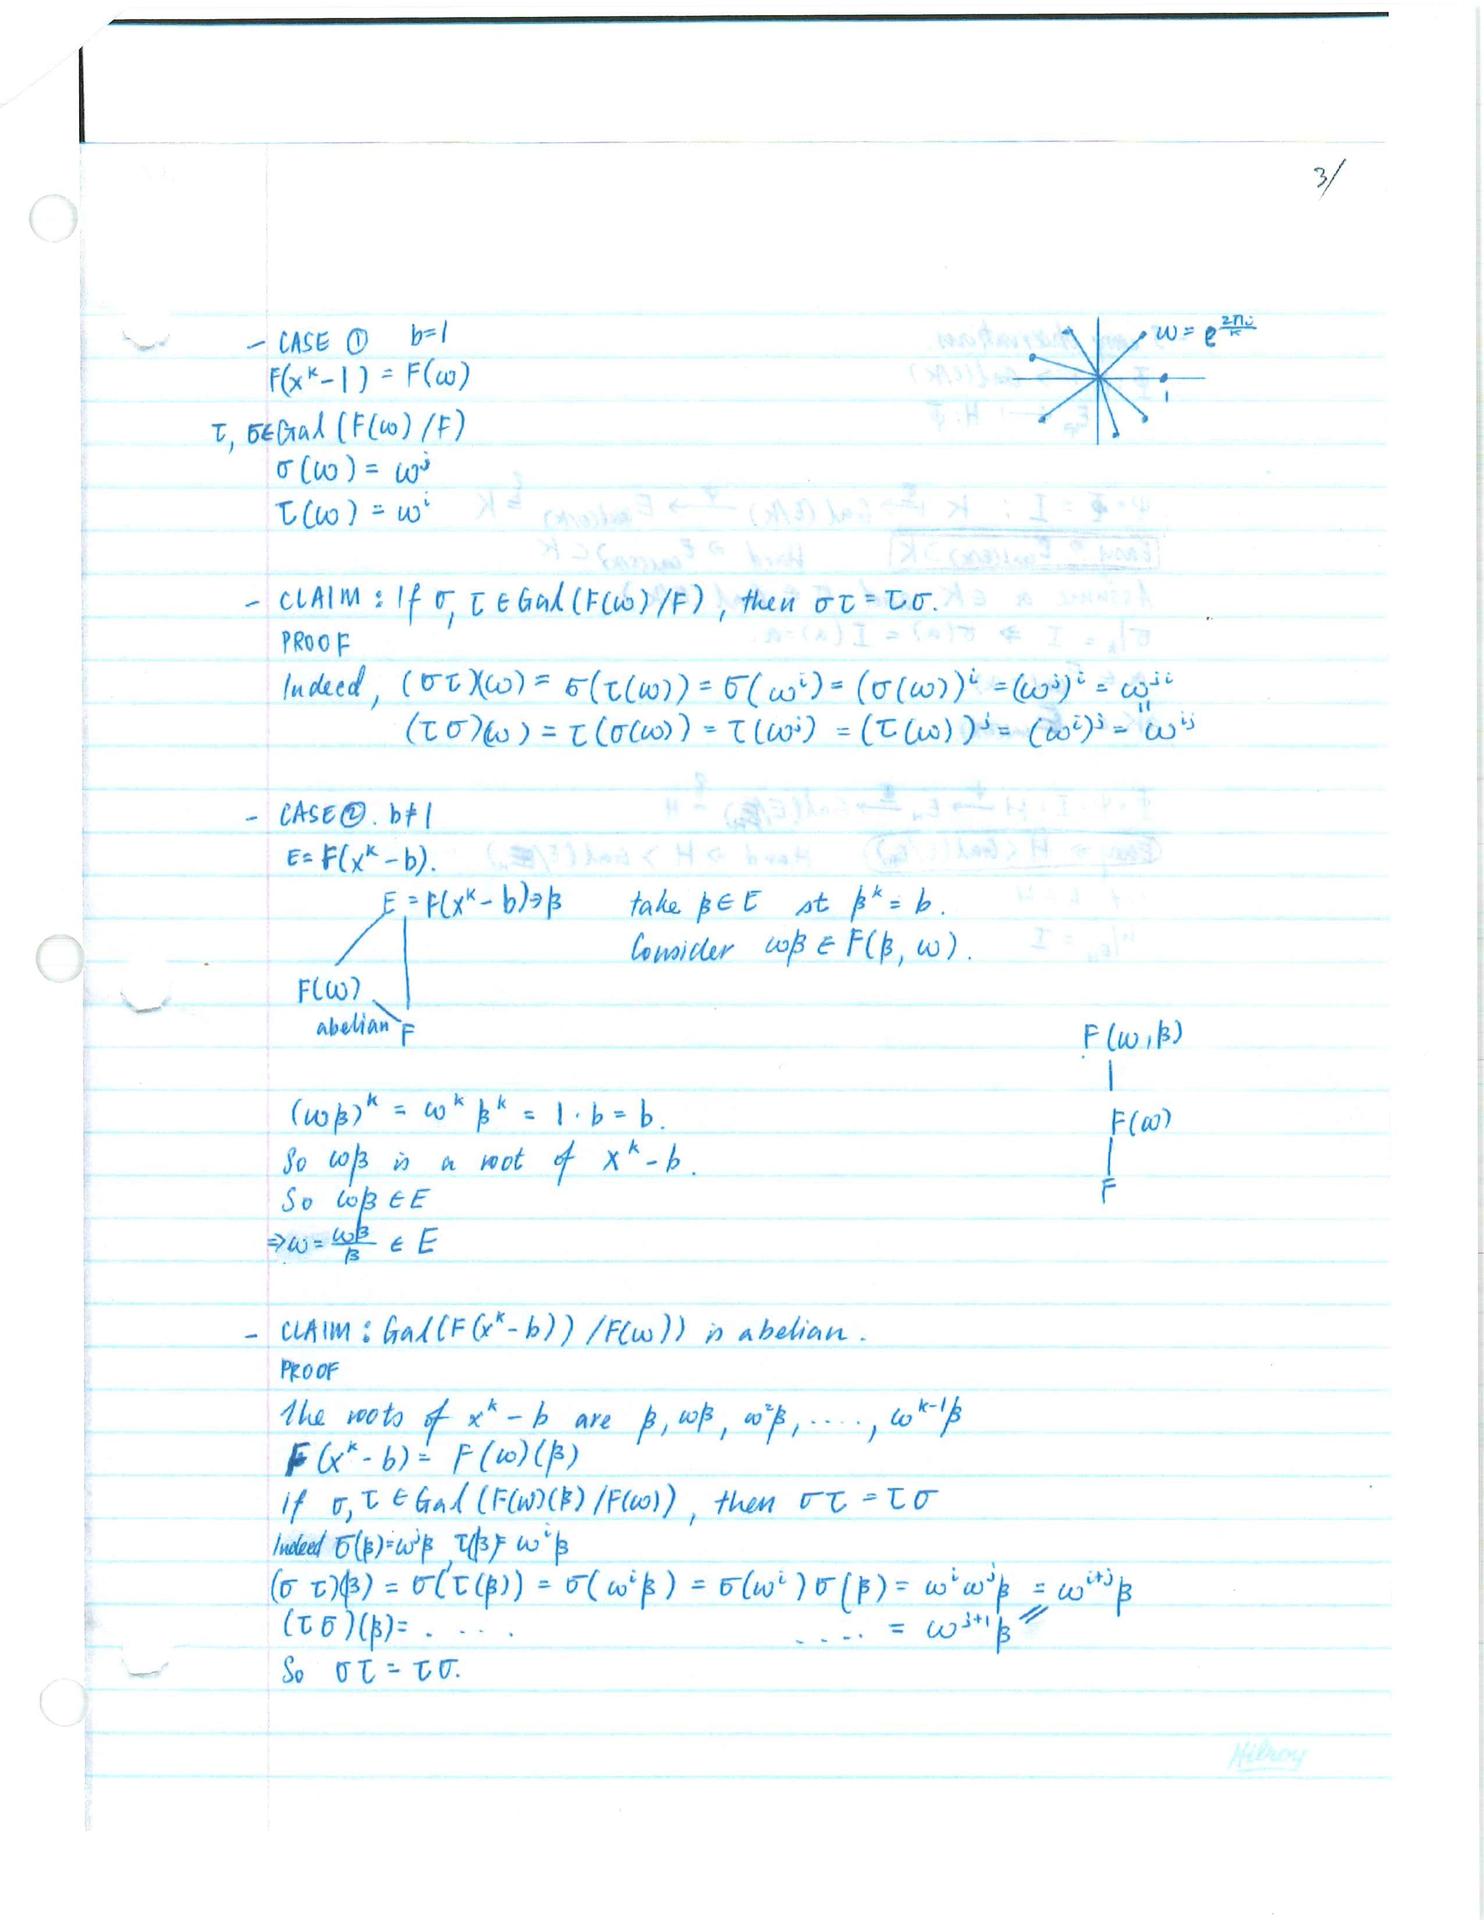 3/
- CASE ① b=1
ω = e^{2πi/k}
F(x^k - 1) = F(ω)
1
τ, σ∈Gal (F(ω)/F)
σ(ω) = ω^j
τ(ω) = ω^i
- CLAIM : If σ, τ ∈ Gal (F(ω)/F), then στ = τσ.
PROOF
Indeed, (στ)(ω) = σ(τ(ω)) = σ(ω^i) = (σ(ω))^i = (ω^j)^i = ω^{ji}
(τσ)(ω) = τ(σ(ω)) = τ(ω^j) = (τ(ω))^j = (ω^i)^j = ω^{ij}
- CASE ②. b≠1
E = F(x^k - b).
E = F(x^k - b)∋β take β ∈ E st β^k = b.
Consider ωβ ∈ F(β, ω).
F(ω)
abelian F
F(ω, β)
F(ω)
F
(ωβ)^k = ω^k β^k = 1 · b = b.
So ωβ is a root of x^k - b.
So ωβ ∈ E
⇒ω = ωβ/β ∈ E
- CLAIM : Gal(F(x^k - b)) /F(ω)) is abelian.
PROOF
The roots of x^k - b are β, ωβ, ω^2β, ...., ω^{k-1}β
F(x^k - b) = F(ω)(β)
If σ, τ ∈ Gal (F(ω)(β)/F(ω)), then στ = τσ
Indeed σ(β)=ω^jβ, τ(β)= ω^iβ
(σ τ)(β) = σ(τ(β)) = σ(ω^iβ) = σ(ω^i)σ(β) = ω^i ω^j β = ω^{i+j}β
(τσ)(β)= . . . . . . . . = ω^{j+i}β
So στ = τσ.
Hilroy